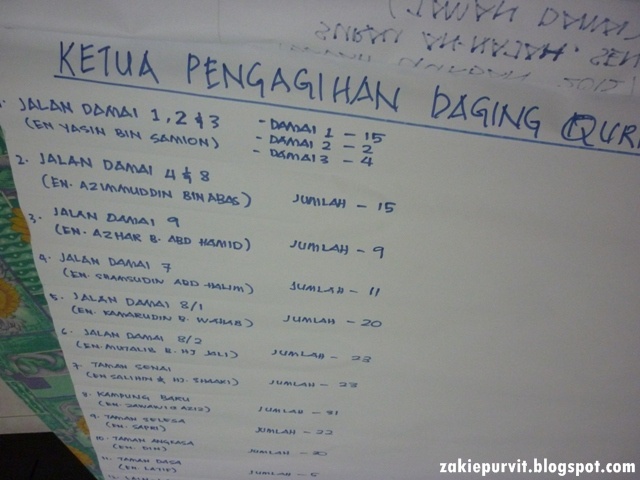 KETUA PENGAGIHAN DAGING QUR
1. JALAN DAMAI 1, 2 & 3 - DAMAI 1 - 15
(EN YASIN BIN SAMION) - DAMAI 2 - 2
- DAMAI 3 - 4
2. JALAN DAMAI 4 & 8
(EN. AZIMMUDDIN BIN ABAS) JUMLAH - 15
3. JALAN DAMAI 9
(EN. AZHAR B. ABD HAMID) JUMLAH - 9
4. JALAN DAMAI 7
(EN. SHAMSUDIN ABD HALIM) JUMLAH - 11
5. JALAN DAMAI 8/1
(EN. KAMARUDIN B. WAHAB) JUMLAH - 20
6. JALAN DAMAI 8/2
(EN. MUTALIB B. HJ JALI) JUMLAH - 23
7. TAMAN SENAI
(EN. SALIHIN & HJ. SHAARI) JUMLAH - 23
8. KAMPUNG BARU
(EN. AZIZ) JUMLAH - 31
9. TAMAN SELESA
(EN. SAPRI) JUMLAH - 22
10. TAMAN ANGKASA
(EN. DIN) JUMLAH - 20
11. TAMAN DASA
(EN. LATIF) JUMLAH - 5
zakiepurvit.blogspot.com